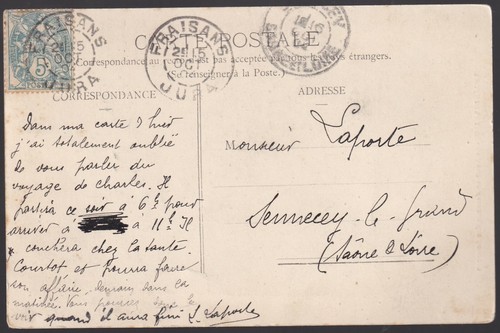 FRAISANS
25
OCT
JURA
5
CARTE POSTALE
FRAISANS
JURA
OCT
Correspondance au est pas acceptée par tous les étrangers.
(Se renseigner à la Poste.)
CORRESPONDANCE
ADRESSE
Dans ma carte d'hier
j'ai totalement oublié
de vous parler du
voyage de charles. Il
partira ce soir à 6h pour
arriver à à 11h. Il
couchera chez la tante
et pourra faire
son affaire, demain dans la
matinée. Vous pourrez le
voir quand il aura fini L. Laporte
Monsieur Laporte
Sennecey-le-Grand
(Saône & Loire)